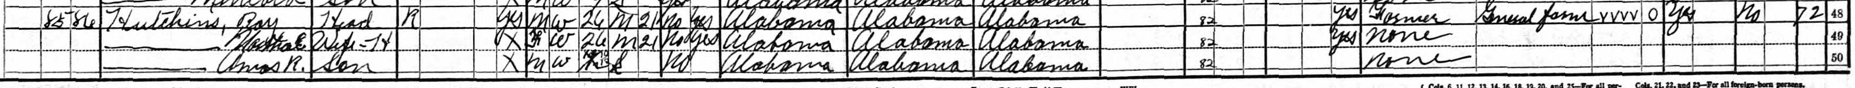 Son
85 86 Hutchins, Ray Head R Yes M W 26 M 21 No Yes Alabama Alabama Alabama 82 Yes Farmer General farm VVVV O Yes No 72 48
Wife-H X F W 26 M 21 No Yes Alabama Alabama Alabama 82 Yes none 49
Amos R. Son X M W S No Alabama Alabama Alabama 82 none 50
Cols. 6, 11, 12, 13, 14, 16, 18, 19, 20, and 25—For all per- Cols. 21, 22, and 23—For all foreign-born persons.